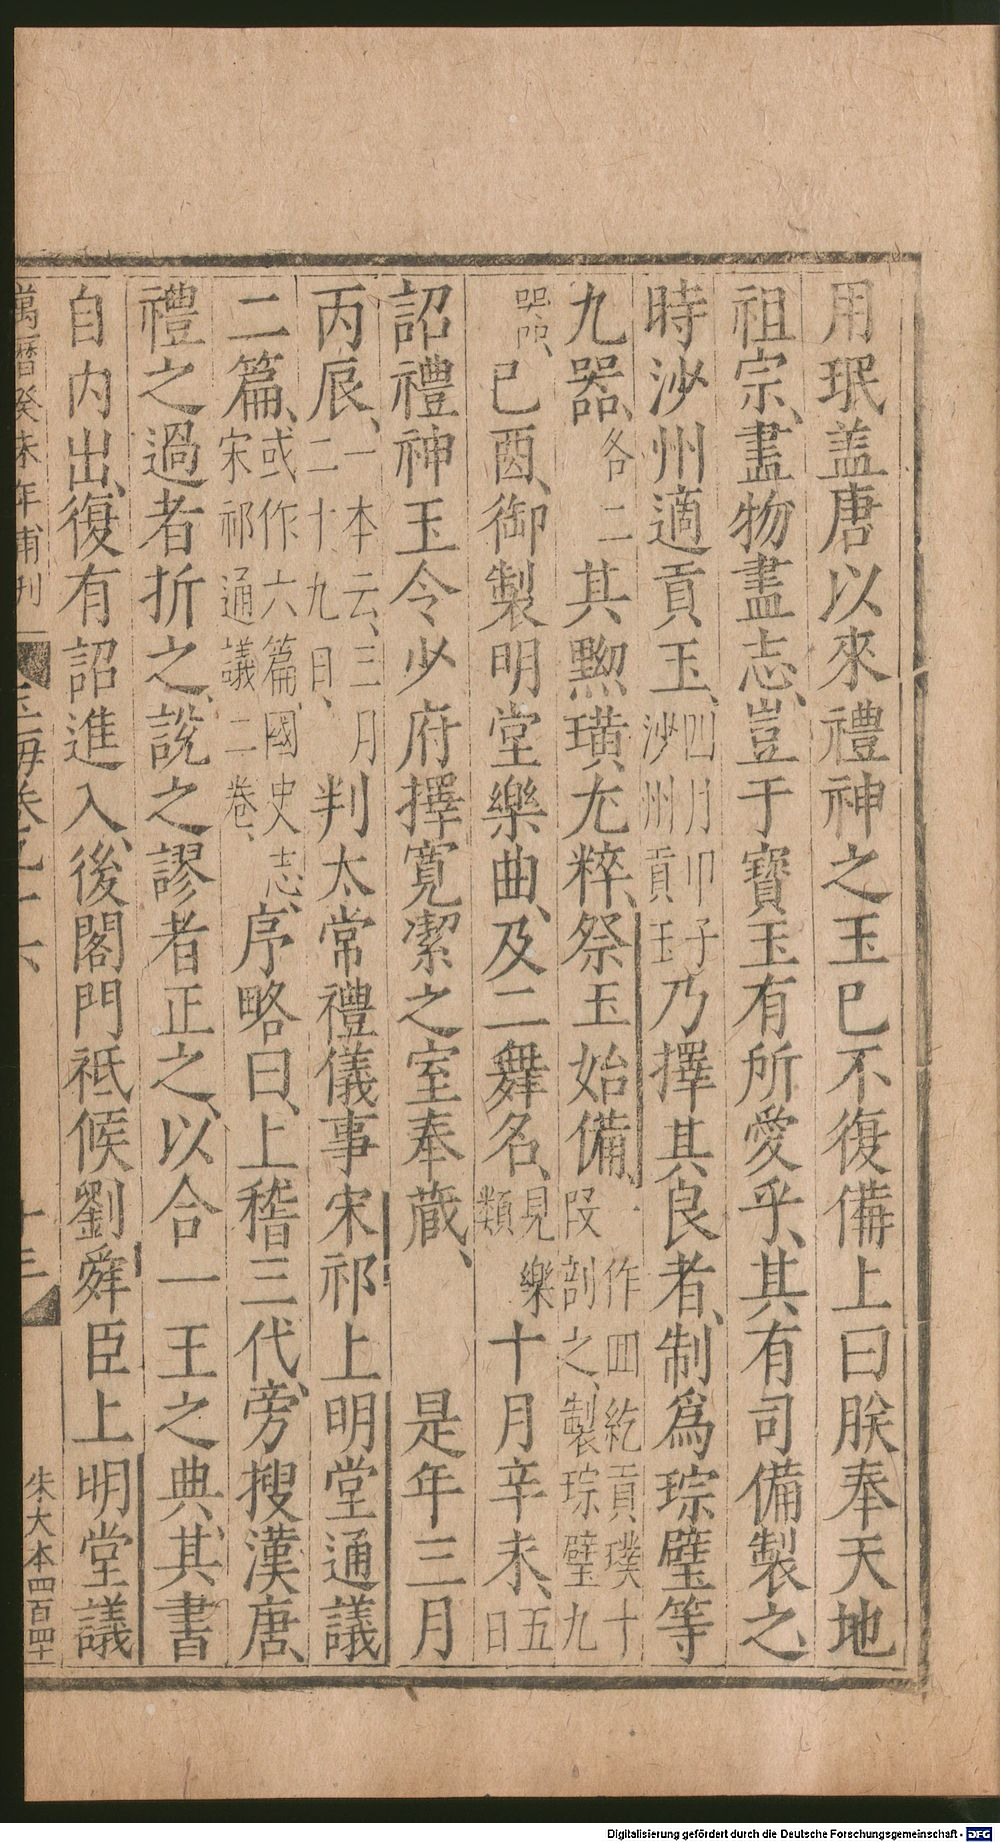 用珉盖唐以來禮神之玉巳不復備上曰朕奉天地
祖宗、盡物盡志、豈于寶玉有所愛乎、其有司備製之
時沙州適貢玉、四月卯子沙州貢玉乃擇其良者、制爲琮璧等
九器、各二其黝璜尤粹、祭玉始備、一作四紇貢璞十段剖之、製琮璧九
器、巳酉、御製明堂樂曲、及二舞名、見樂類十月辛未、五日
詔禮神玉令少府擇寬潔之室奉蔵、 是年三月
丙辰、一本云、三月二十九日、判太常禮儀事宋祁上明堂通議
二篇、或作六篇、國史志、宋祁通議二卷、序略曰、上稽三代、旁搜漢唐、
禮之過者折之、說之謬者正之、以合一王之典、其書
自内出、復有詔進入、後閣門祗候劉舜臣上明堂議
萬曆癸未年補刊 玉海卷九十六 十三 朱大本四百四十
Digitalisierung gefördert durch die Deutsche Forschungsgemeinschaft - DFG